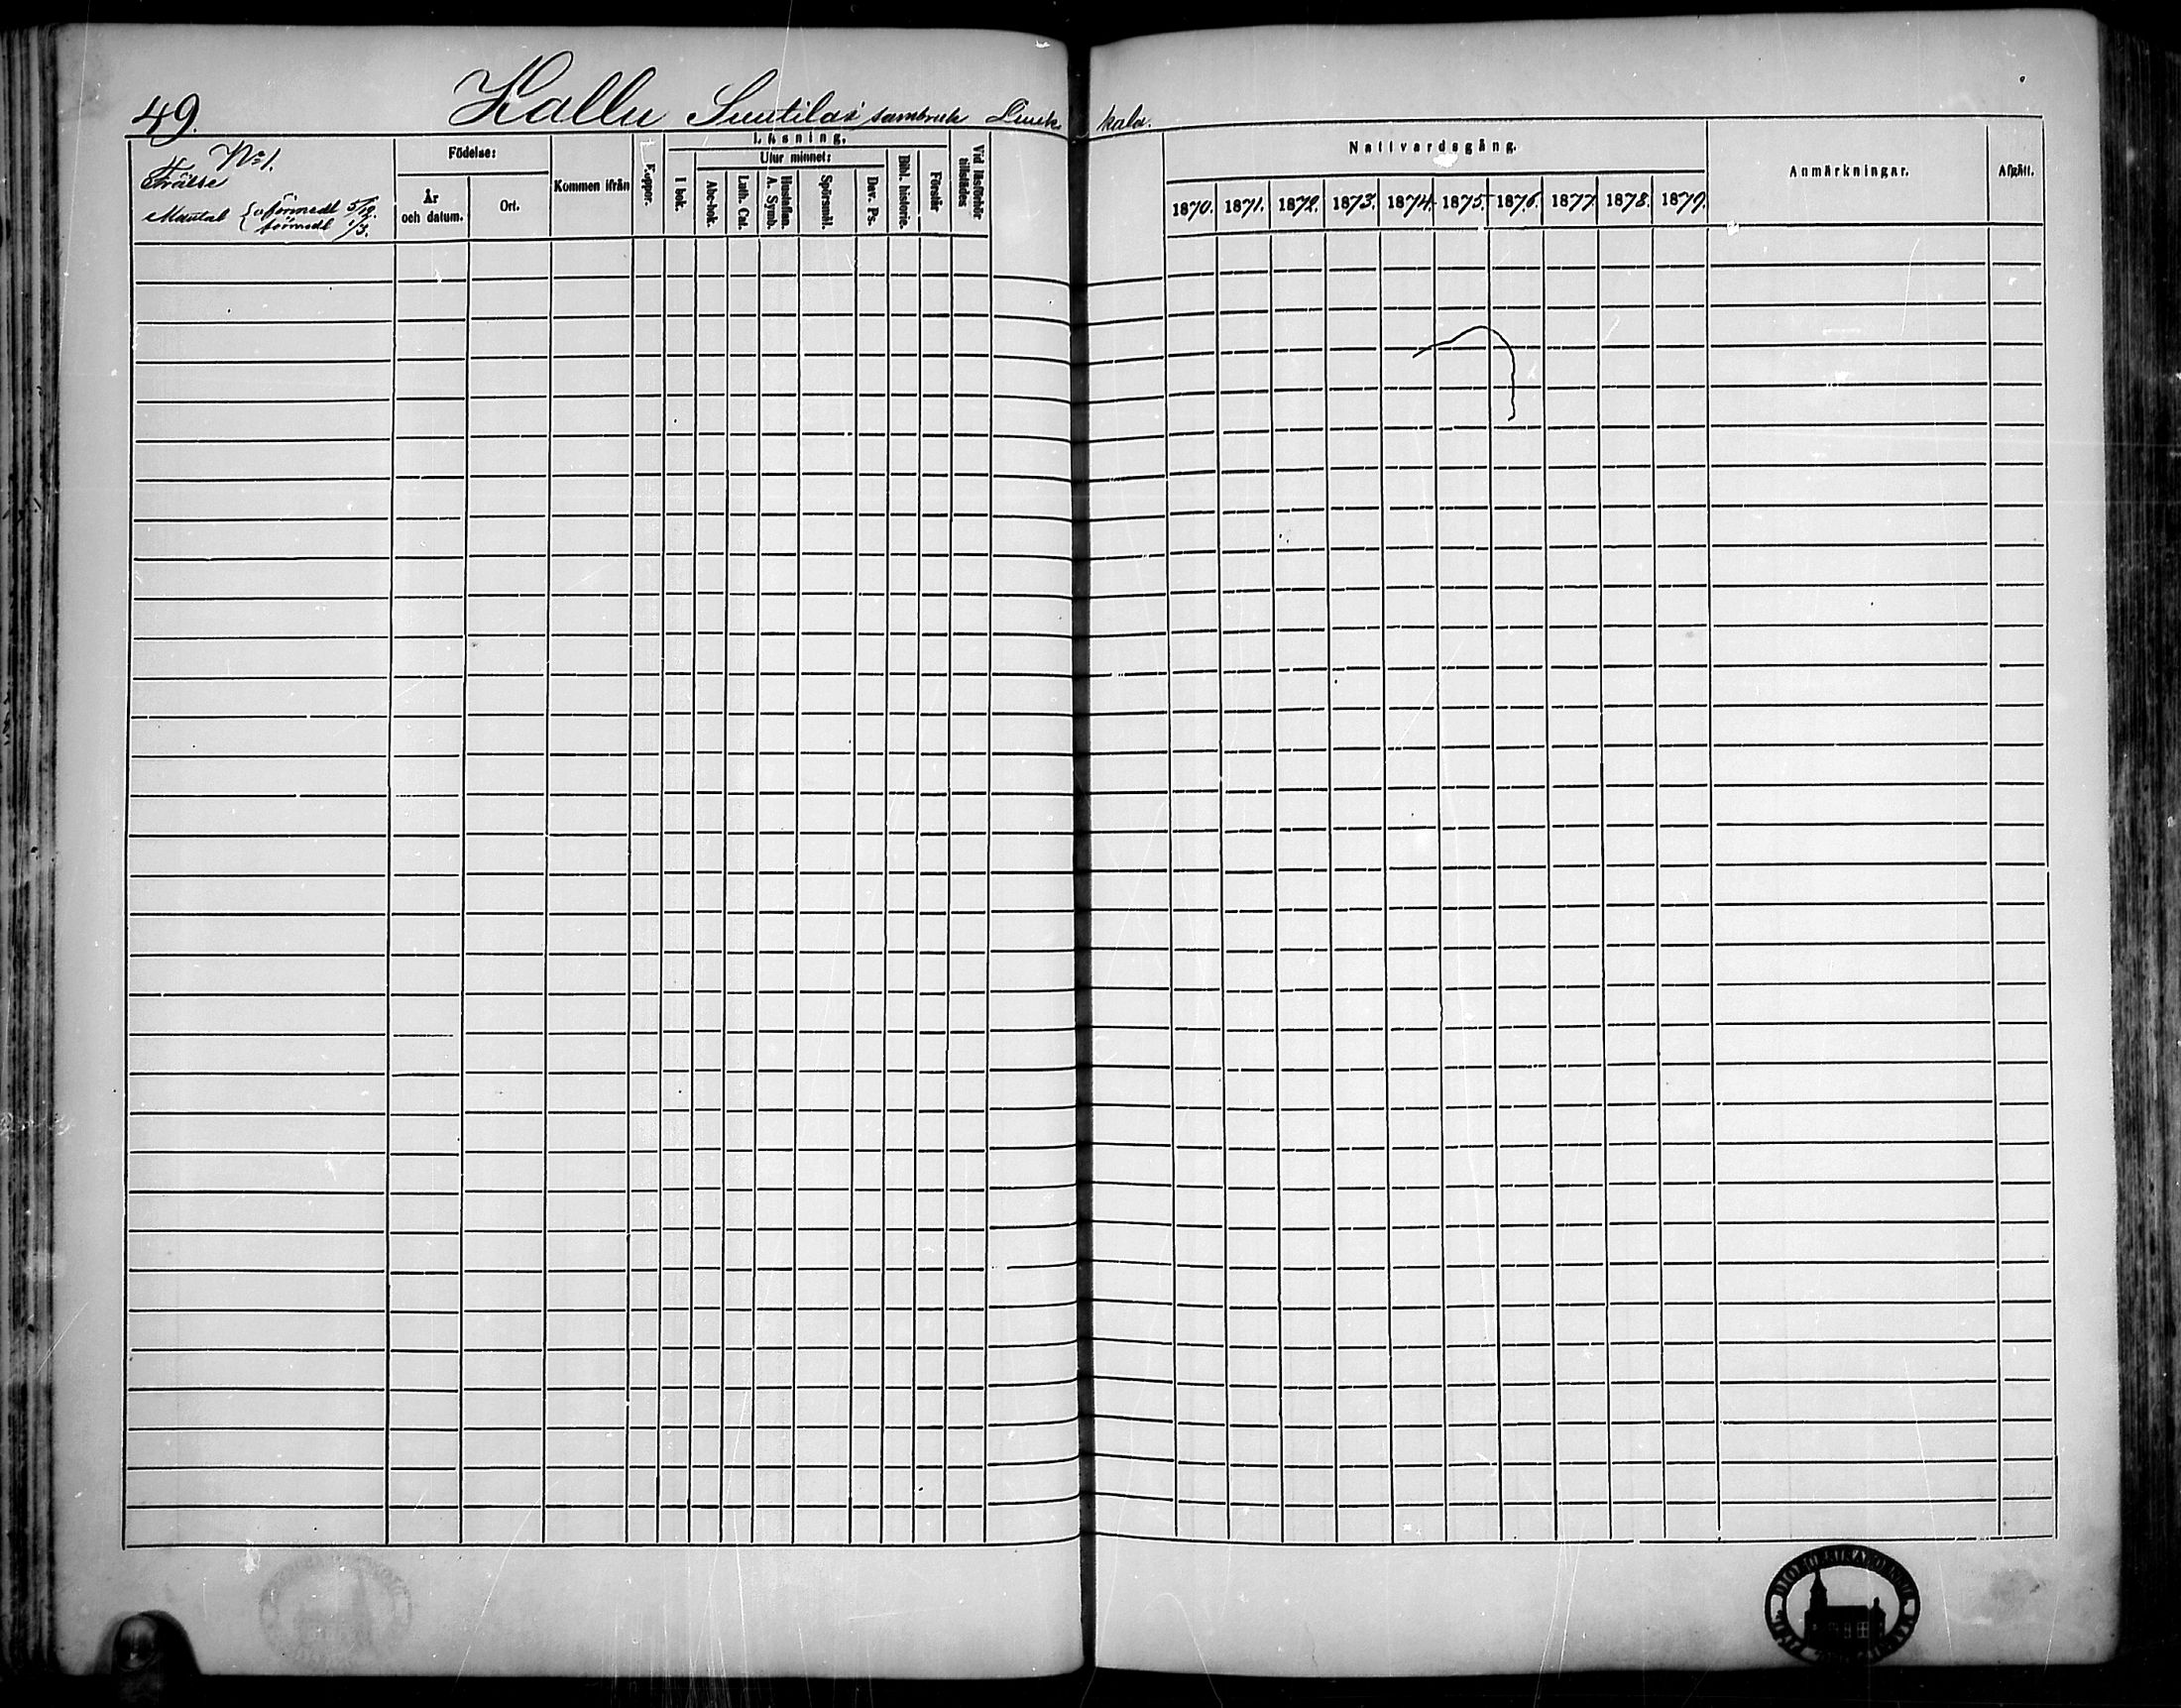 49.
Kallu Suutilas' sambruk
kala.
No 1.
Frälse
Mantal { oförmedl 5/12.
förmedl 1/3.
Födelse:
År och datum.
Ort.
Kommen ifrån
Koppor.
Läsning.
I bok.
Utur minnet:
Abc-bok.
Luth. Cat.
Hustaflan. A. Symb.
Spörsmål.
Dav. Ps.
Bibl. historie.
Förstår
Vid läsförhör tillstädes
Nattvardsgång.
1870. 1871. 1872. 1873. 1874. 1875. 1876. 1877. 1878. 1879.
Anmärkningar.
Afgått.